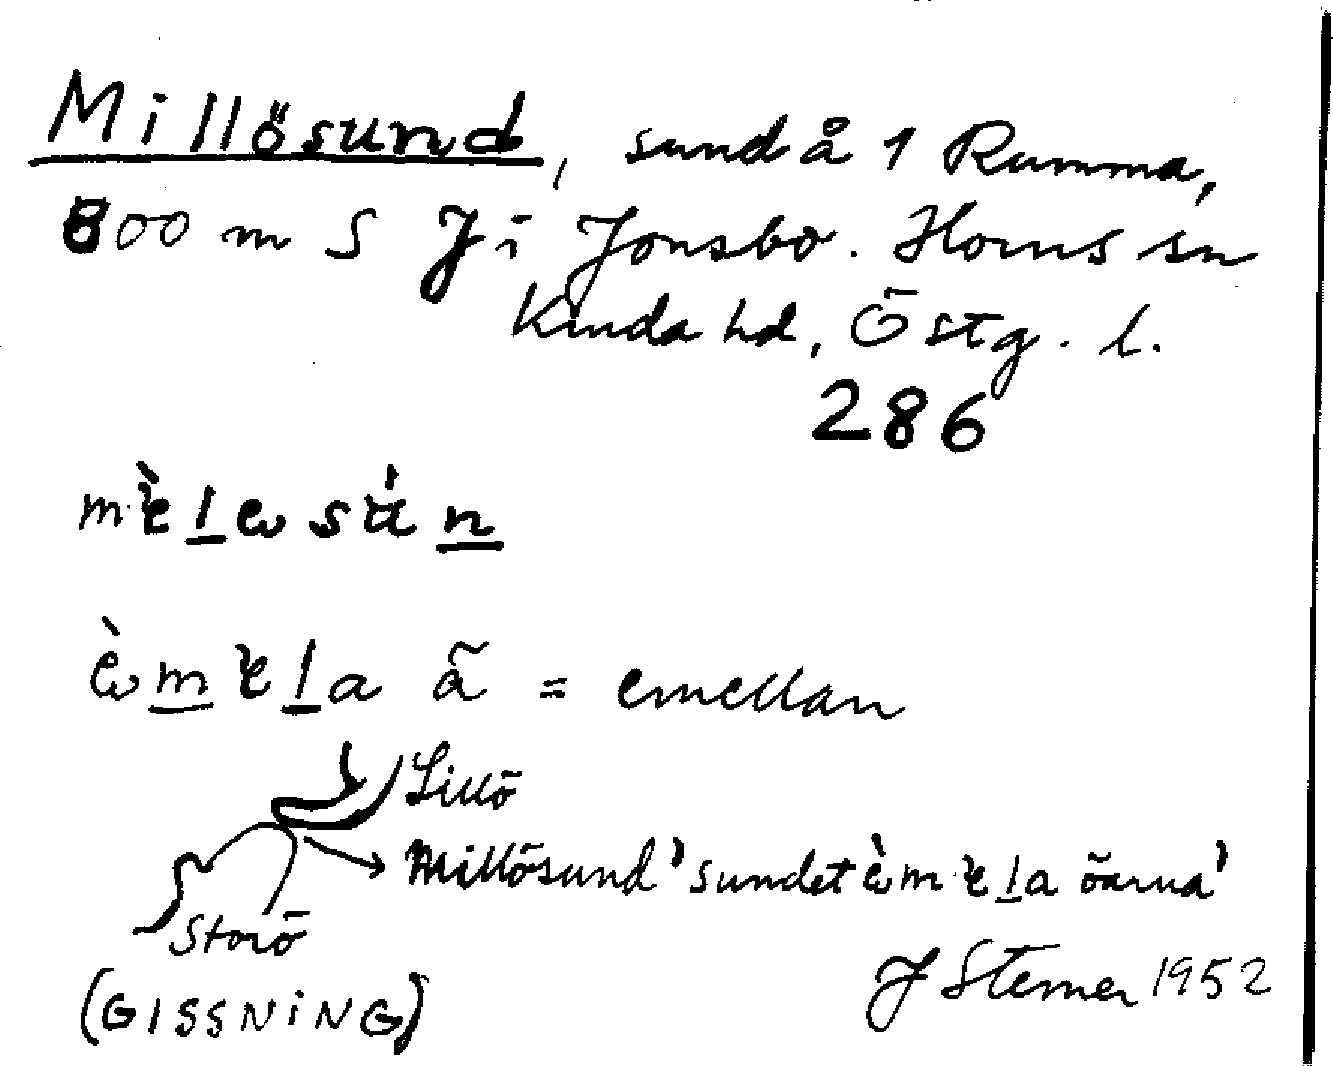 Millösund, sund å 1 Rumma,
800 m S J i Jonsbo. Horns sn
Kinda hd, Östg. l.
286
= emellan
Lillö
Millösund 'sundet öarna'
Storö
(GISSNING)
J Sterner 1952